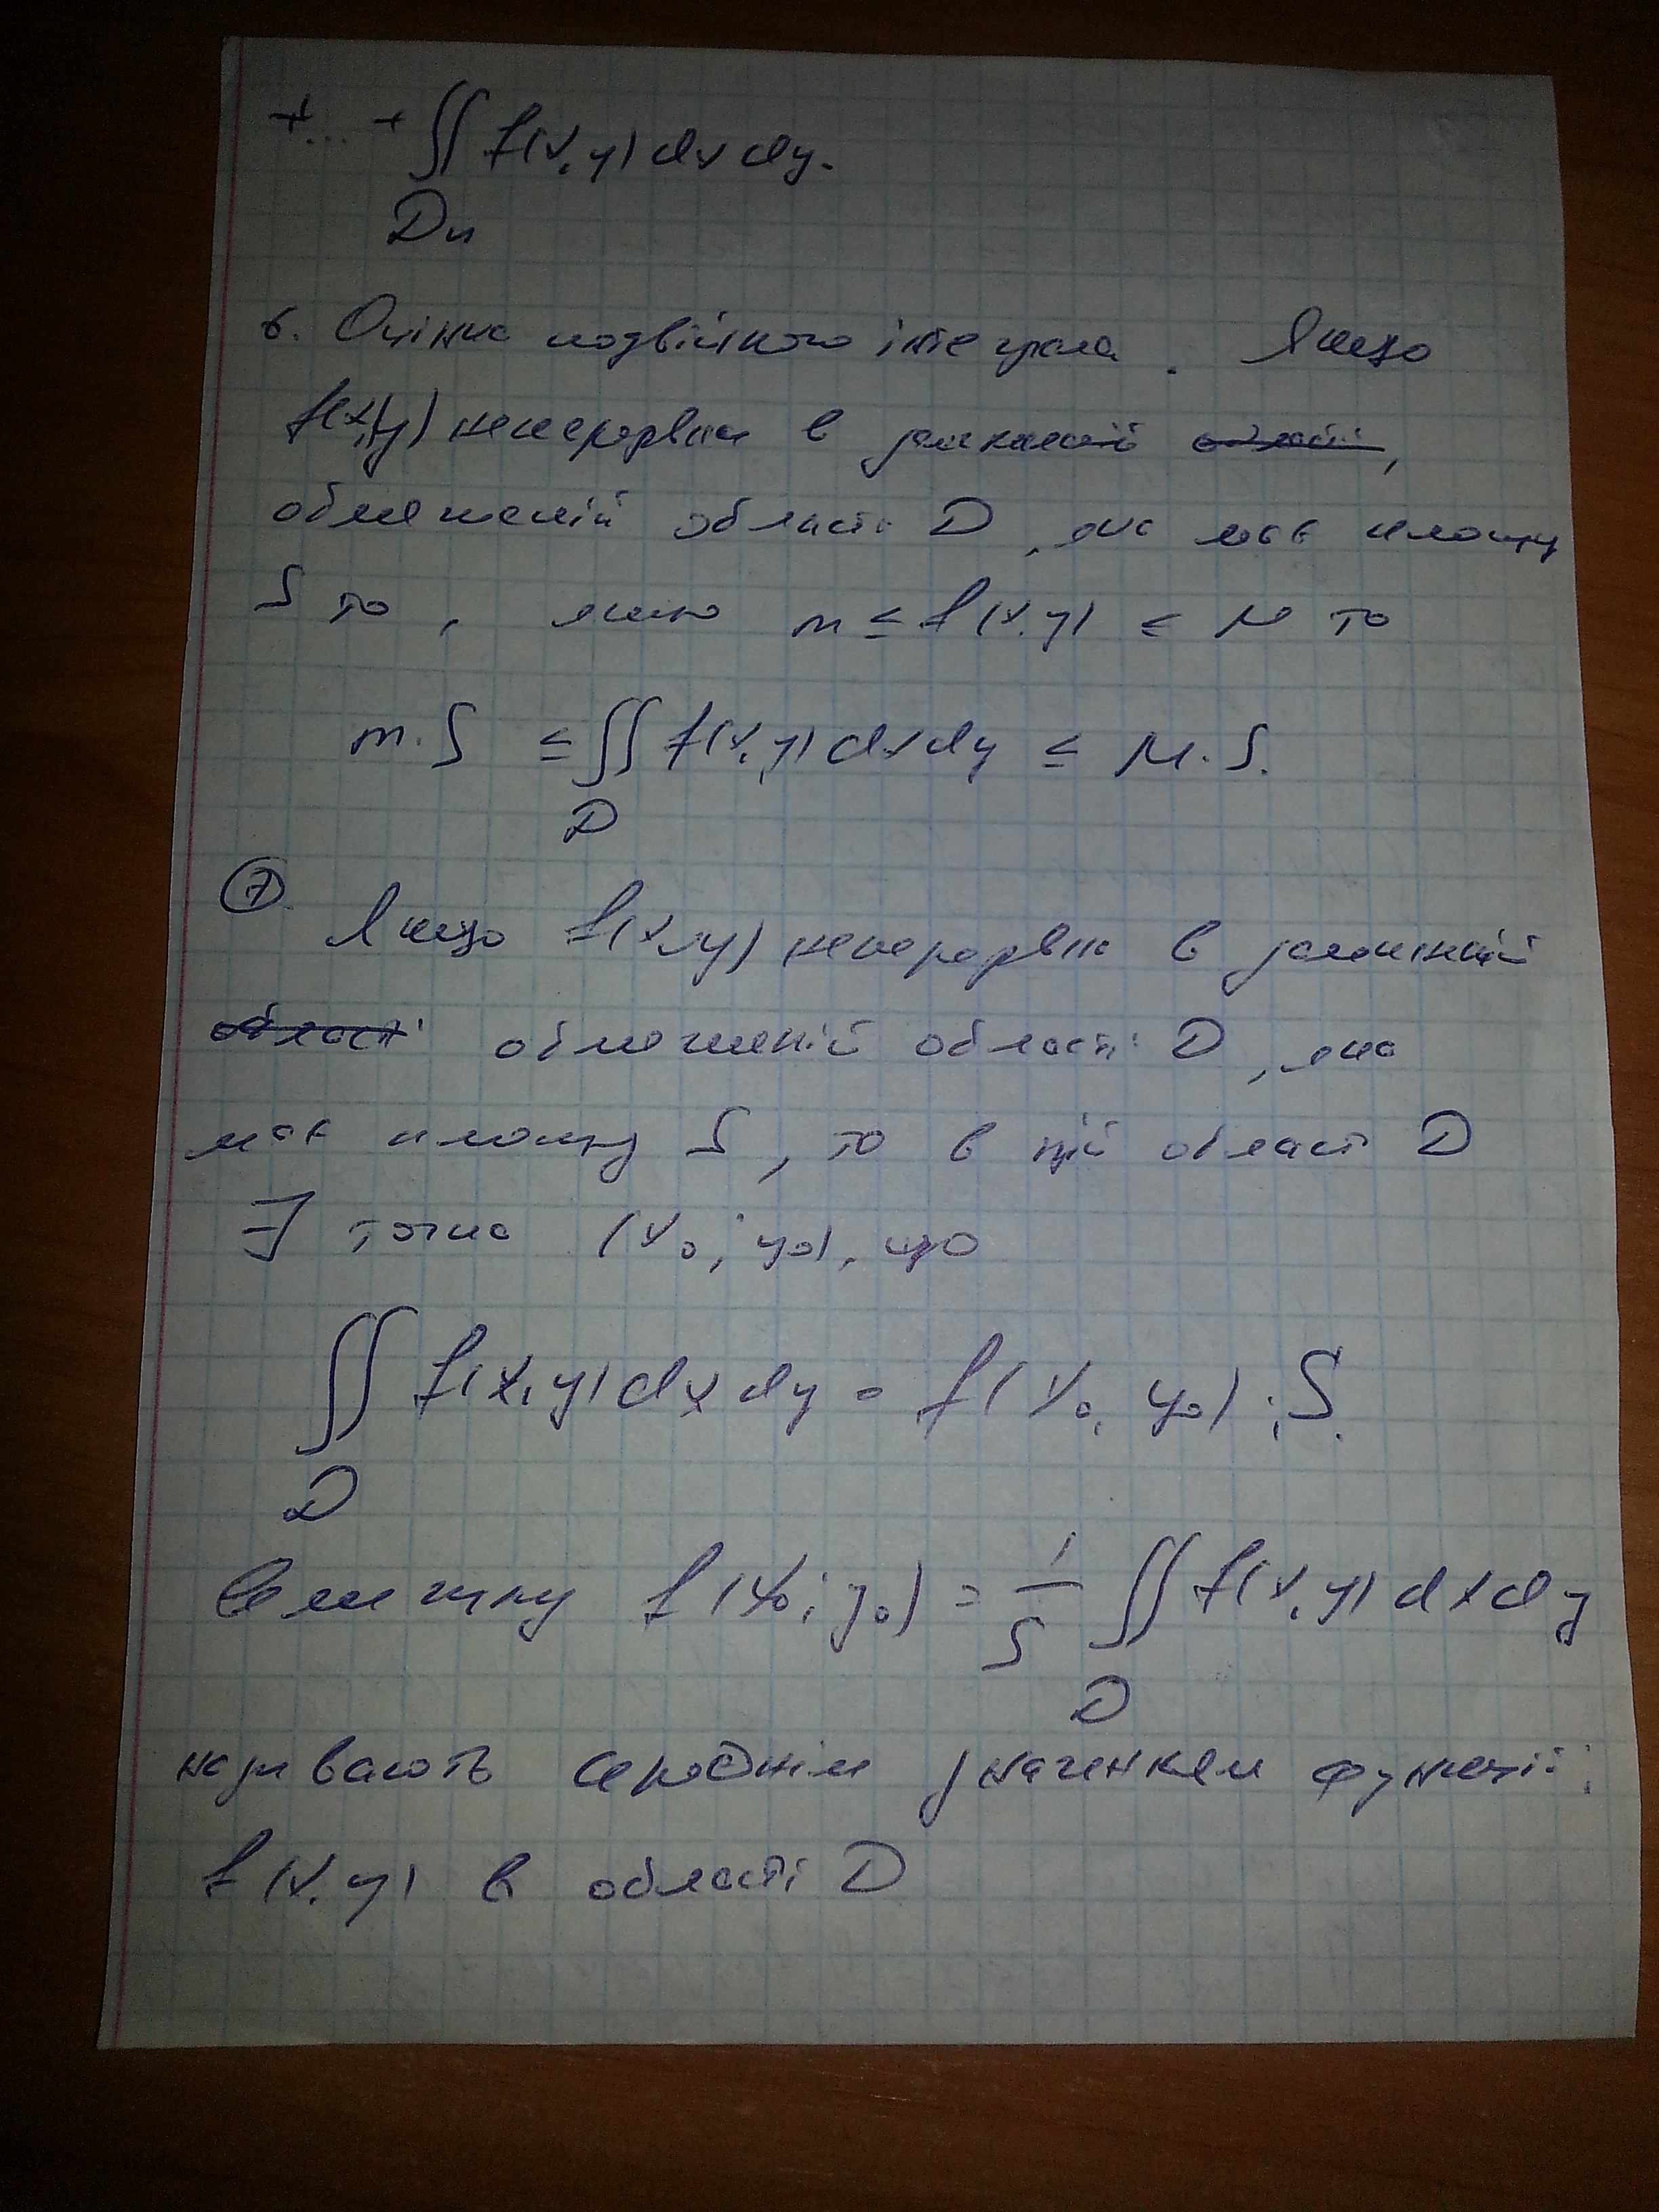 + ... + ∬ f(x, y) dx dy.
Dn
6. Оцінка подвійного інтеграла. Якщо
f(x, y) неперервна в замкненій області,
обмеженій області D, яка має площу
S то, якщо m ≤ f(x, y) ≤ M то
m · S ≤ ∬ f(x, y) dx dy ≤ M · S.
D
7 Якщо f(x, y) неперервна в замкненій
області обмеженій області D, яка
має площу S, то в цій област D
∃ точка (x₀; y₀), що
∬ f(x, y) dx dy = f(x₀, y₀) · S.
D
Величину f(x₀; y₀) = 1/S ∬ f(x, y) dx dy
D
називають середнім значенням функції
f(x, y) в області D